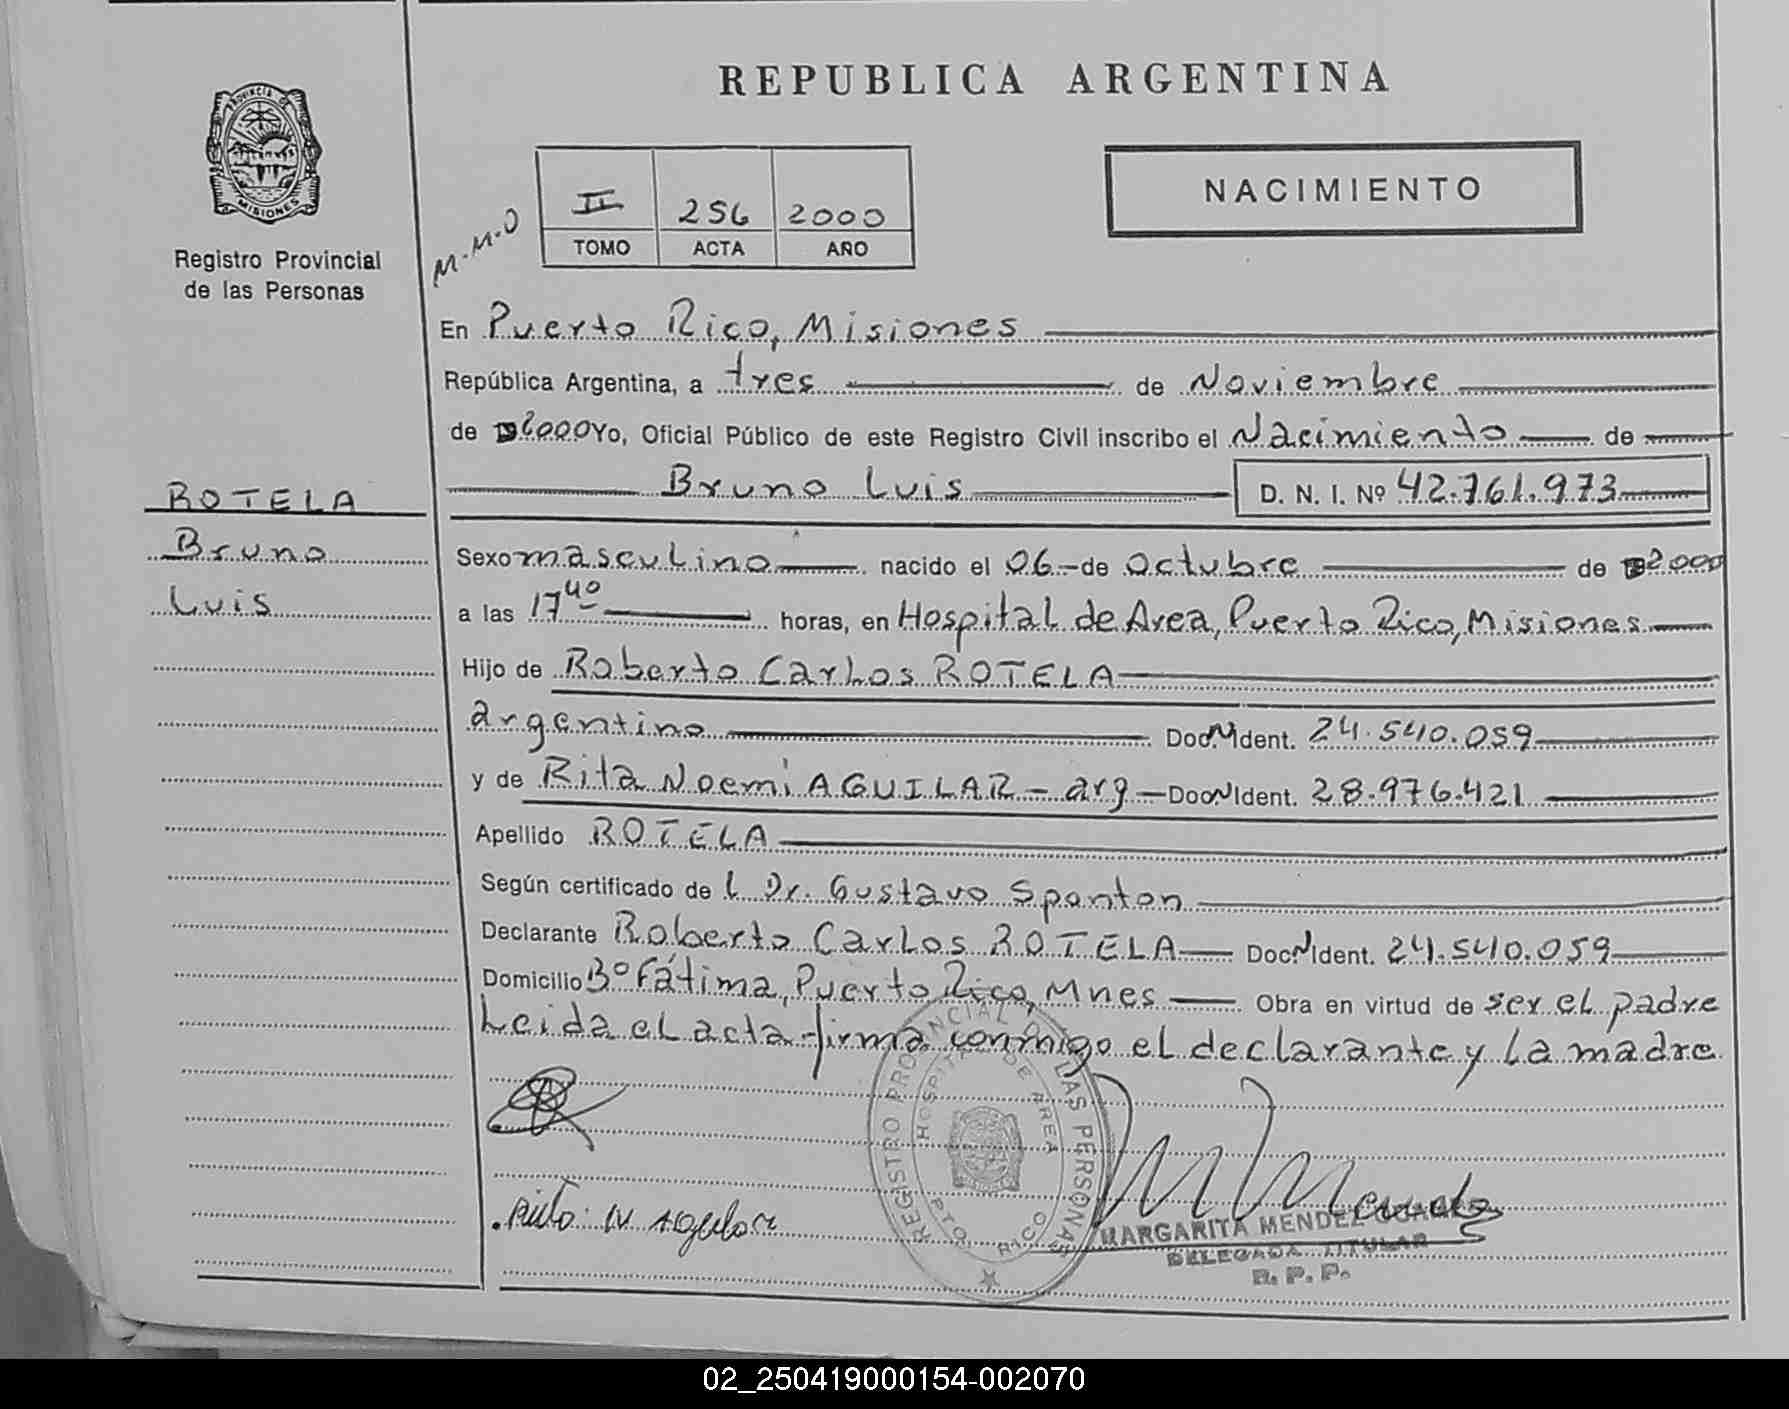 REPUBLICA ARGENTINA
PROVINCIA DE
MISIONES
Registro Provincial
de las Personas
NACIMIENTO
II 256 2000
TOMO ACTA AÑO
M.M.O
En Puerto Rico, Misiones
República Argentina, a tres de Noviembre
de 2000 Yo, Oficial Público de este Registro Civil inscribo el Nacimiento de
Bruno Luis D. N. I. Nº 42.761.973
ROTELA
Bruno
Luis
Sexo masculino nacido el 06 de Octubre de 2000
a las 17 40 horas, en Hospital de Area, Puerto Rico, Misiones
Hijo de Roberto Carlos ROTELA
argentino Doc. N Ident. 24.540.059
y de Rita Noemi AGUILAR - arg - Doc N Ident. 28.976.421
Apellido ROTELA
Según certificado de l Dr. Gustavo Sponton
Declarante Roberto Carlos ROTELA Doc N Ident. 24.540.059
Domicilio Bº Fátima, Puerto Rico, Mnes Obra en virtud de ser el padre
Leida el acta firma conmigo el declarante y la madre
REGISTRO PROVINCIAL DE LAS PERSONAS
HOSPITAL DE AREA
PTO. RICO
MARGARITA MENDEZ
DELEGADA TITULAR
R. P. P.
02_250419000154-002070